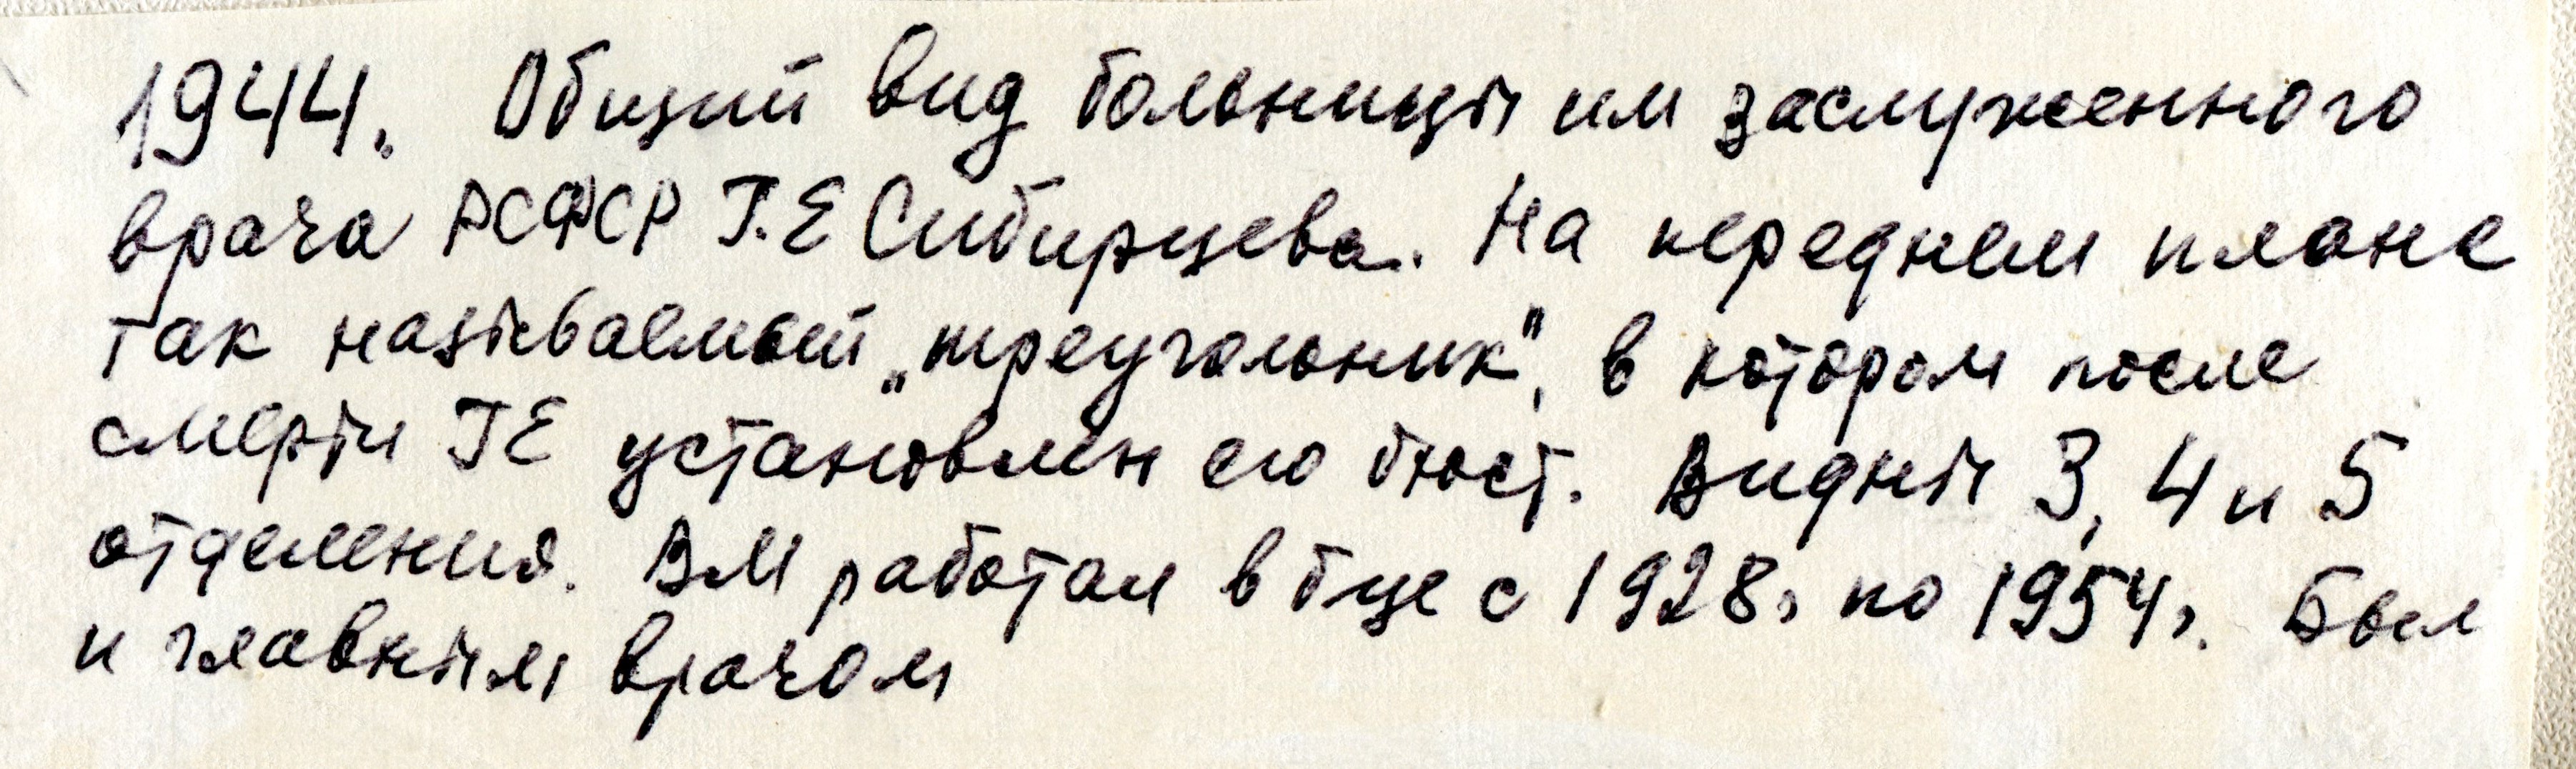 1944. Общий вид больницы им заслуженного
врача РСФСР Г.Е Сибирцева. На переднем плане
так называемый „треугольник", в котором после
смерти ГЕ установлен его бюст. Видны 3, 4 и 5
отделения. ВМ работал в б-це с 1928г по 1954г. Был
и главным врачом